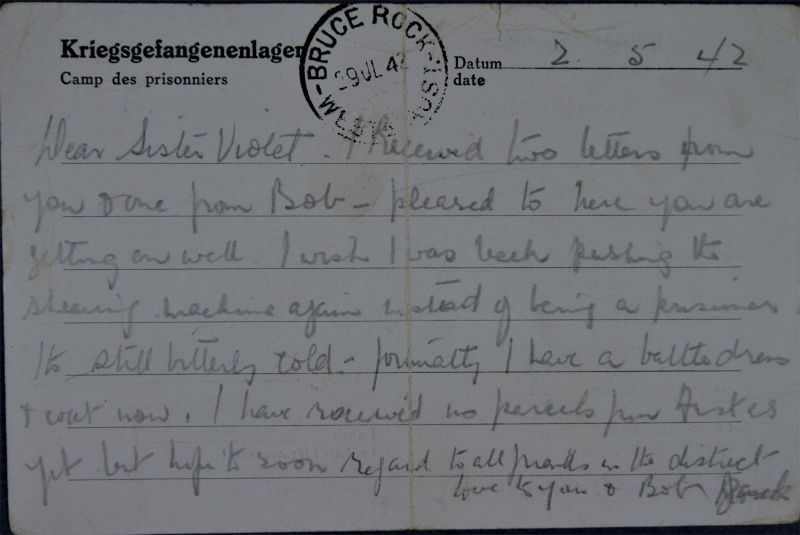 Kriegsgefangenenlager
Camp des prisonniers
BRUCE ROCK
29 JL 42
Datum
date
2. 5 42
Dear Sister Violet. I received two letters from
you & one from Bob - pleased to here you are
getting on well. I wish I was back pushing the
shearing machine again instead of being a prisoner
Its still bitterly cold - I have a battledress
& coat now. I have received no parcels from
yet but hope to soon regard to all friends in the district
love to you & Bob